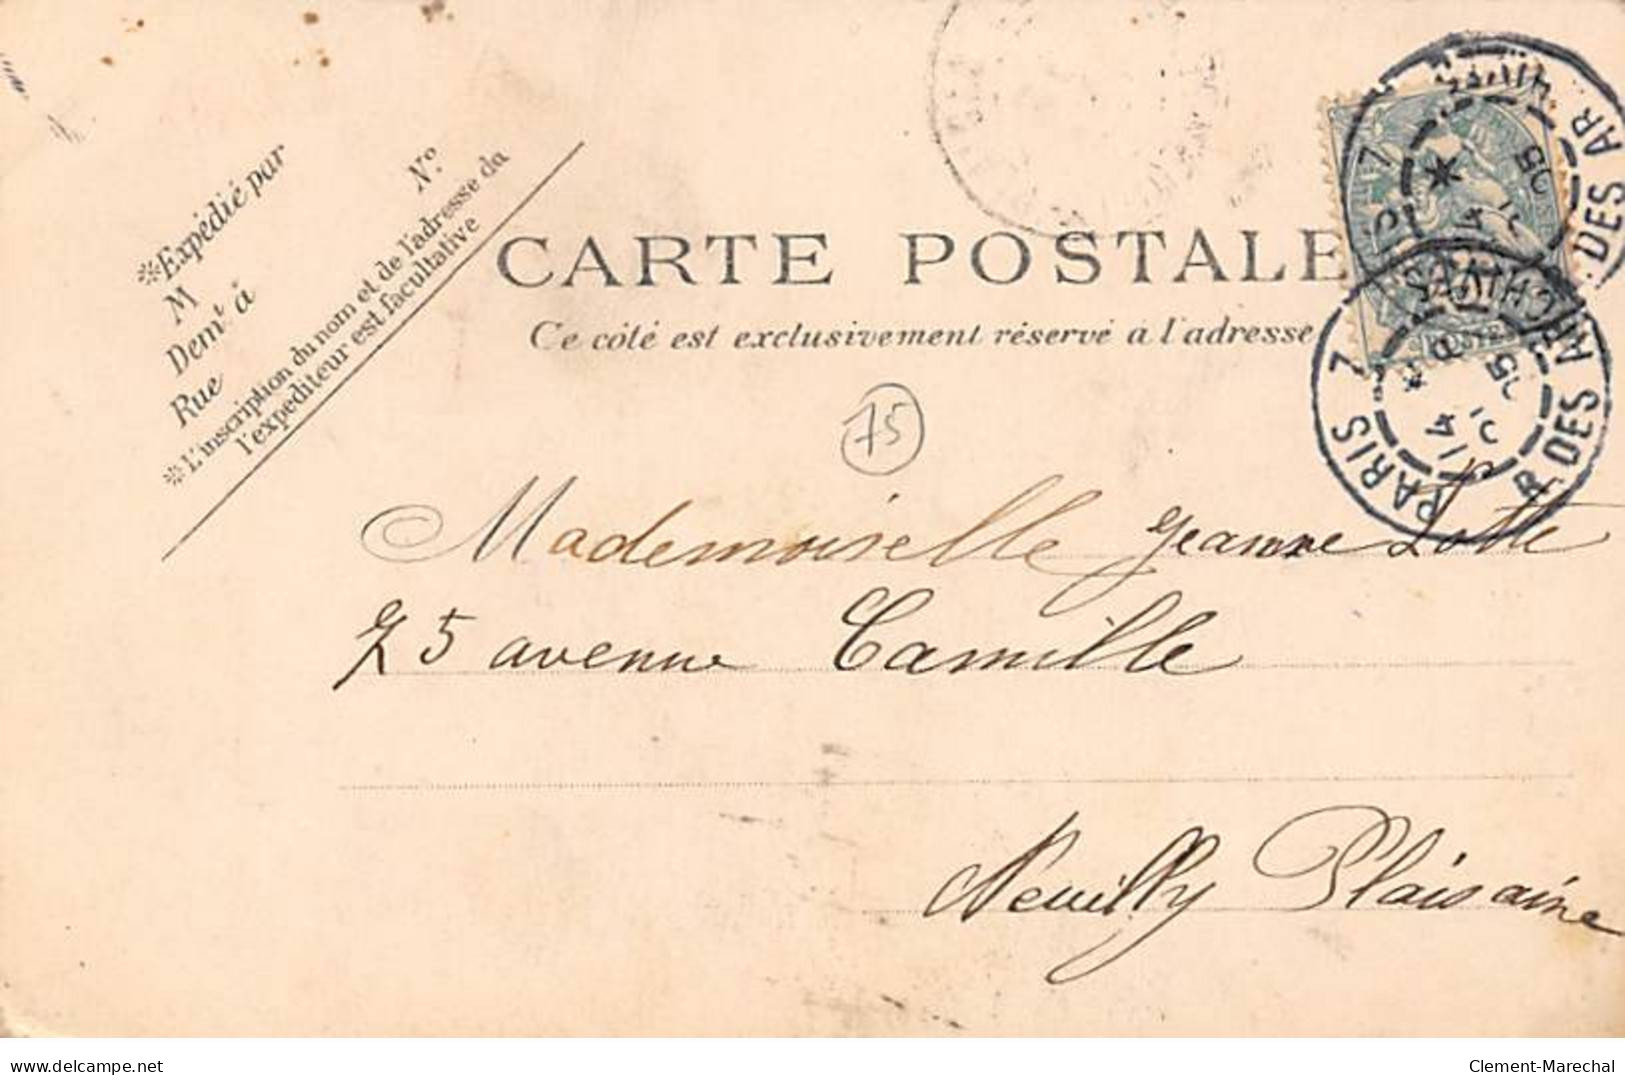 *Expédié par
M N°
Demt à
Rue
*L'inscription du nom et de l'adresse de
l'expéditeur est facultative
CARTE POSTALE
Ce côté est exclusivement réservé à l'adresse
PARIS 7
R. DES ARCHIVES
05
75
Mademoiselle Jeanne Lotte
75 avenue Camille
Neuilly Plaisaine
delcampe.net
Clement-Marechal